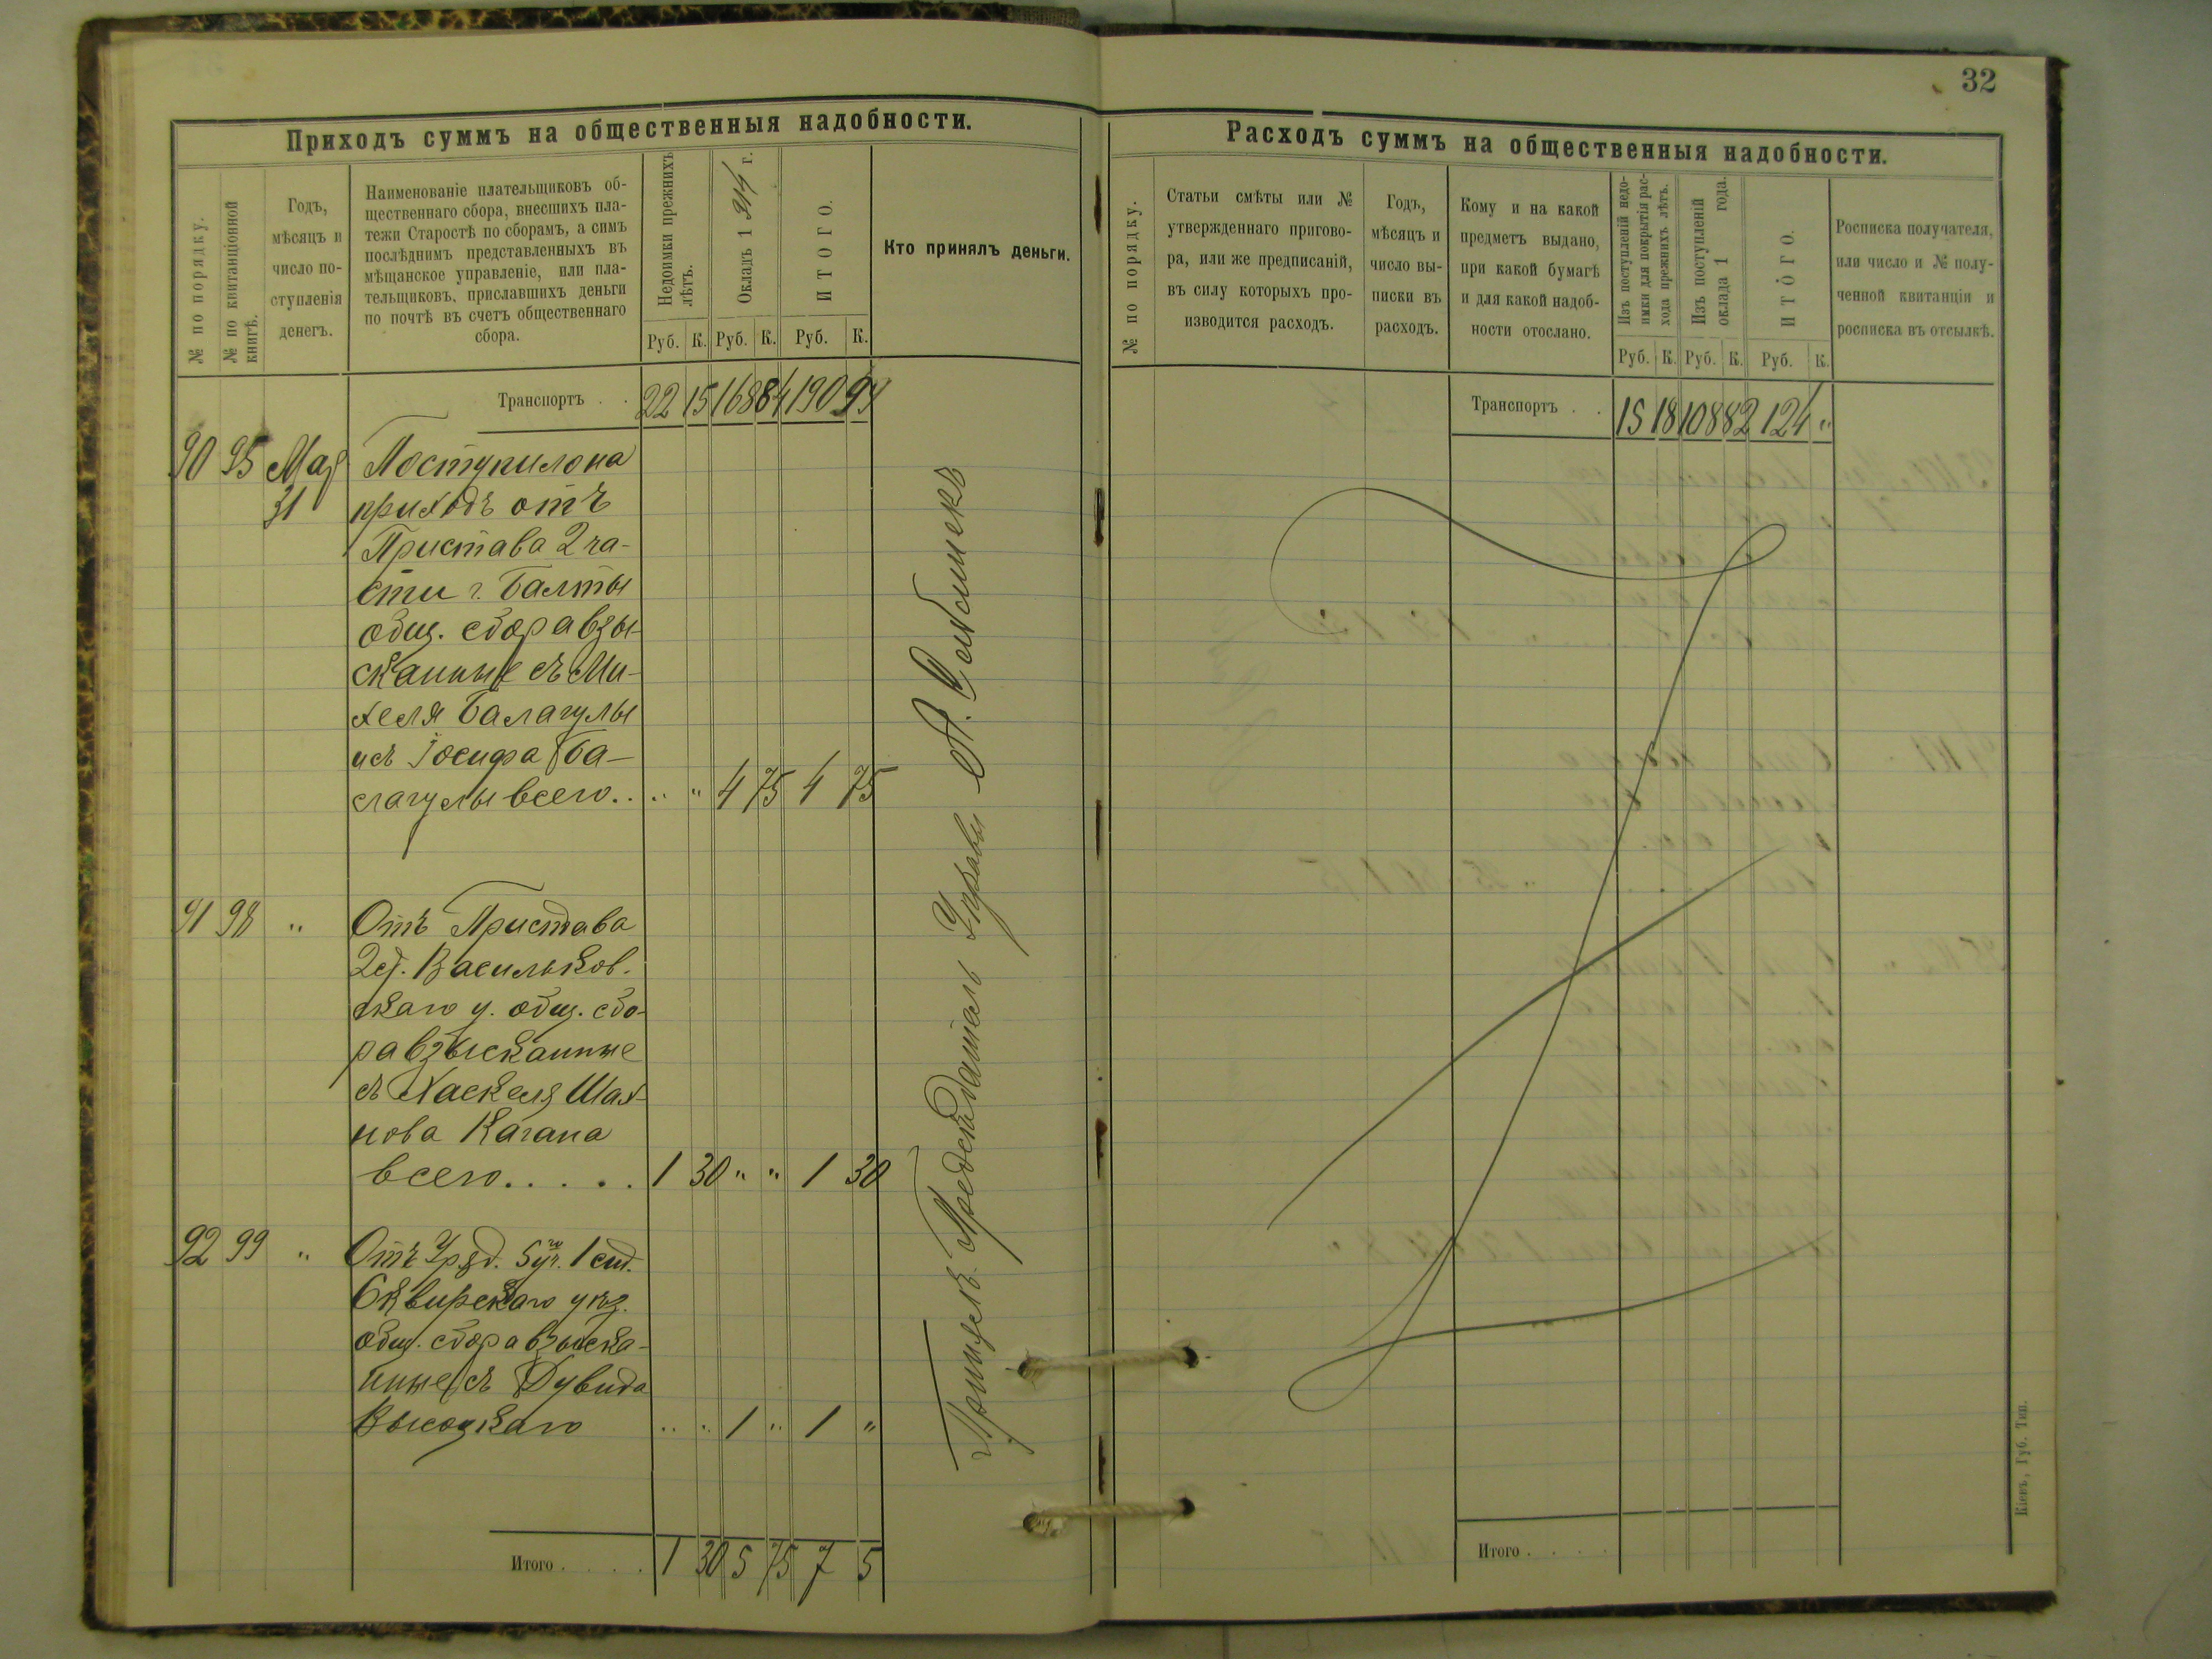 32
Приходъ суммъ на общественныя надобности.
№ по порядку.
№ по квитанціонной
книгѣ.
Годъ,
мѣсяцъ и
число по-
ступленія
денегъ.
Наименованіе плательщиковъ об-
щественнаго сбора, внесшихъ пла-
тежи Старостѣ по сборамъ, а симъ
послѣднимъ представленныхъ въ
мѣщанское управленіе, или пла-
тельщиковъ, приславшихъ деньги
по почтѣ въ счетъ общественнаго
сбора.
Недоимки прежнихъ
лѣтъ.
Окладъ 1 г.
ИТОГО.
Руб. К. Руб. К. Руб. К.
Кто принялъ деньги.
Транспортъ . . 22 15 168 84 190 99
90 95 Мая Поступило на
31 приходъ отъ
Пристава 2 ча-
сти г. Балты
общ. сбора взы-
сканные съ Ми-
хеля Балагулы
и съ Іосифа Ба-
лагулы всего . . „ „ 4 75 4 75
91 98 „ Отъ Пристава
2 ст. Васильков.
скаго у. общ. сбо-
ра взысканные
съ Хаскеля Шах-
нова Кагана
всего . . . . . 1 30 „ „ 1 30
92 99 „ Отъ Уряд. 5 уч. 1 ст.
Сквирскаго уѣз.
общ. сбора взыска-
нные съ Дувида
Высоцкаго „ „ 1 „ 1 „
Итого . . . . 1 30 5 75 7 5
Предсѣдатель Управы
Расходъ суммъ на общественныя надобности.
№ по порядку.
Статьи смѣты или №
утвержденнаго пригово-
ра, или же предписаній,
въ силу которыхъ про-
изводится расходъ.
Годъ,
мѣсяцъ и
число вы-
писки въ
расходъ.
Кому и на какой
предметъ выдано,
при какой бумагѣ
и для какой надоб-
ности отослано.
Изъ поступленій недо-
имки для покрытія рас-
хода прежнихъ лѣтъ.
Изъ поступленій
оклада 1 года.
ИТОГО.
Руб. К. Руб. К. Руб. К.
Росписка получателя,
или число и № полу-
ченной квитанціи и
росписка въ отсылкѣ.
Транспортъ . . 15 18 108 82 124 „
Итого . . . .
Кіевъ, Губ. Тип.